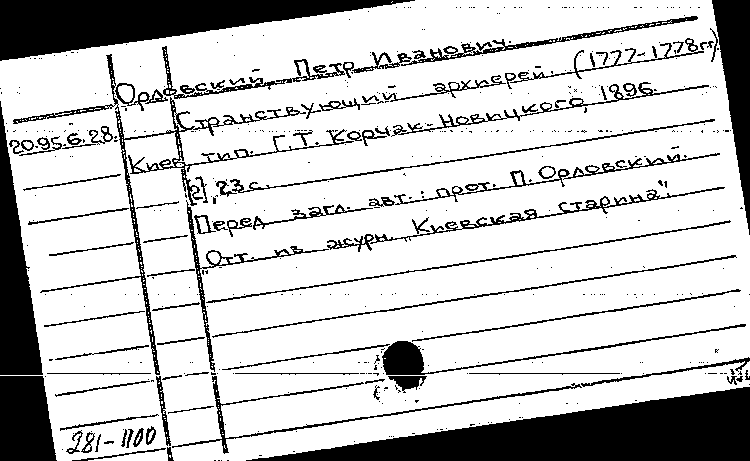 Орловский, Петр Иванович.
Странствующий архиерей. (1777-1778гг)
20.95.6.28.
Киев, тип. Г.Т. Корчак-Новицкого, 1896.
[2], 23 с.
Перед загл. авт.: прот. П. Орловский.
"Отт. из журн. "Киевская старина".
281-1100